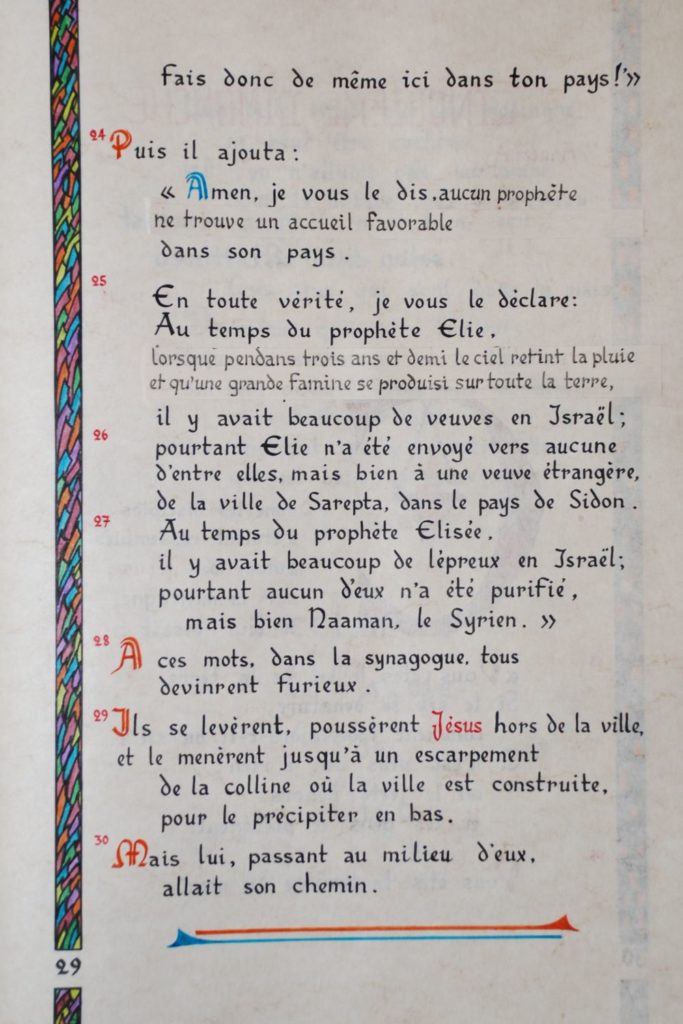 fais donc de même ici dans ton pays!'»
24 Puis il ajouta :
« Amen, je vous le dis, aucun prophète
ne trouve un accueil favorable
dans son pays.
25
En toute vérité, je vous le déclare:
Au temps du prophète Elie,
lorsque pendans trois ans et demi le ciel retint la pluie
et qu'une grande famine se produisi sur toute la terre,
il y avait beaucoup de veuves en Israël;
26
pourtant Elie n'a été envoyé vers aucune
d'entre elles, mais bien à une veuve étrangère,
de la ville de Sarepta, dans le pays de Sidon.
27
Au temps du prophète Elisée,
il y avait beaucoup de lépreux en Israël;
pourtant aucun d'eux n'a été purifié,
mais bien Naaman, le Syrien. »
28 A ces mots, dans la synagogue, tous
devinrent furieux.
29 Ils se levèrent, poussèrent Jésus hors de la ville,
et le menèrent jusqu'à un escarpement
de la colline où la ville est construite,
pour le précipiter en bas.
30 Mais lui, passant au milieu d'eux,
allait son chemin.
29